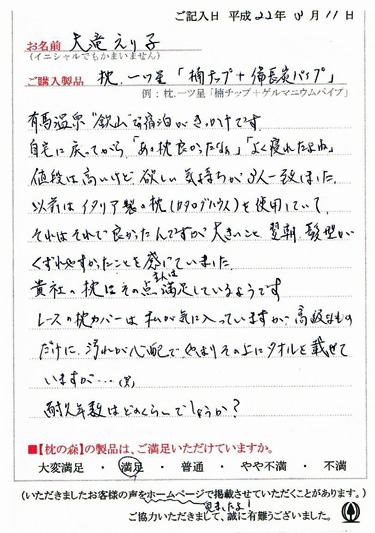 ご記入日 平成22年 3月 11日
お名前 大滝えり子
(イニシャルでもかまいません)
ご購入製品 枕.一ツ星「楠チップ+備長炭パイプ」
例:枕.一ツ星「楠チップ+ゲルマニウムパイプ」
有馬温泉"欽山"宿泊がきっかけです
自宅に戻ってから、「あの枕良かったね」「よく寝れたよね」
値段は高いけど、欲しい気持ちが2人一致ました.
以前はイタリア製の枕(カタログハウス)を使用していて、
それはそれで良かったんですが大きいこと、翌朝、髪型が
くずれやすかったことを感じていました.
貴社の枕はその点満足しているようです
主人は
レースの枕カバーは私が気に入っていますが、高級なもの
だけに、汚れが心配で、やはりその上にタオルを載せて
いますが…(笑)
耐久年数はどのくらいでしょうか?
■【枕の森】の製品は、ご満足いただけていますか。
大変満足 ・ 満足 ・ 普通 ・ やや不満 ・ 不満
(いただきましたお客様の声をホームページで掲載させていただくことがあります。)
見ましたよ!
ご協力いただきまして、誠に有難うございました。